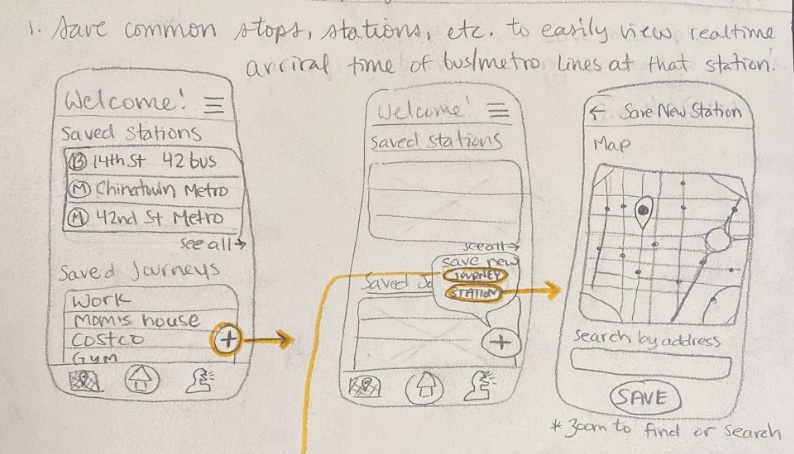 1. Save common stops, stations, etc. to easily view realtime
arrival time of bus/metro lines at that station.
Welcome!
Saved Stations
B 14th St 42 bus
M Chinatown Metro
M 42nd St Metro
see all→
Saved Journeys
Work
Mom's house
Costco
Gym
+
Welcome!
Saved Stations
see all→
save new
JOURNEY
STATION
Saved Jo
+
← Save New Station
Map
Search by address
SAVE
* zoom to find or search